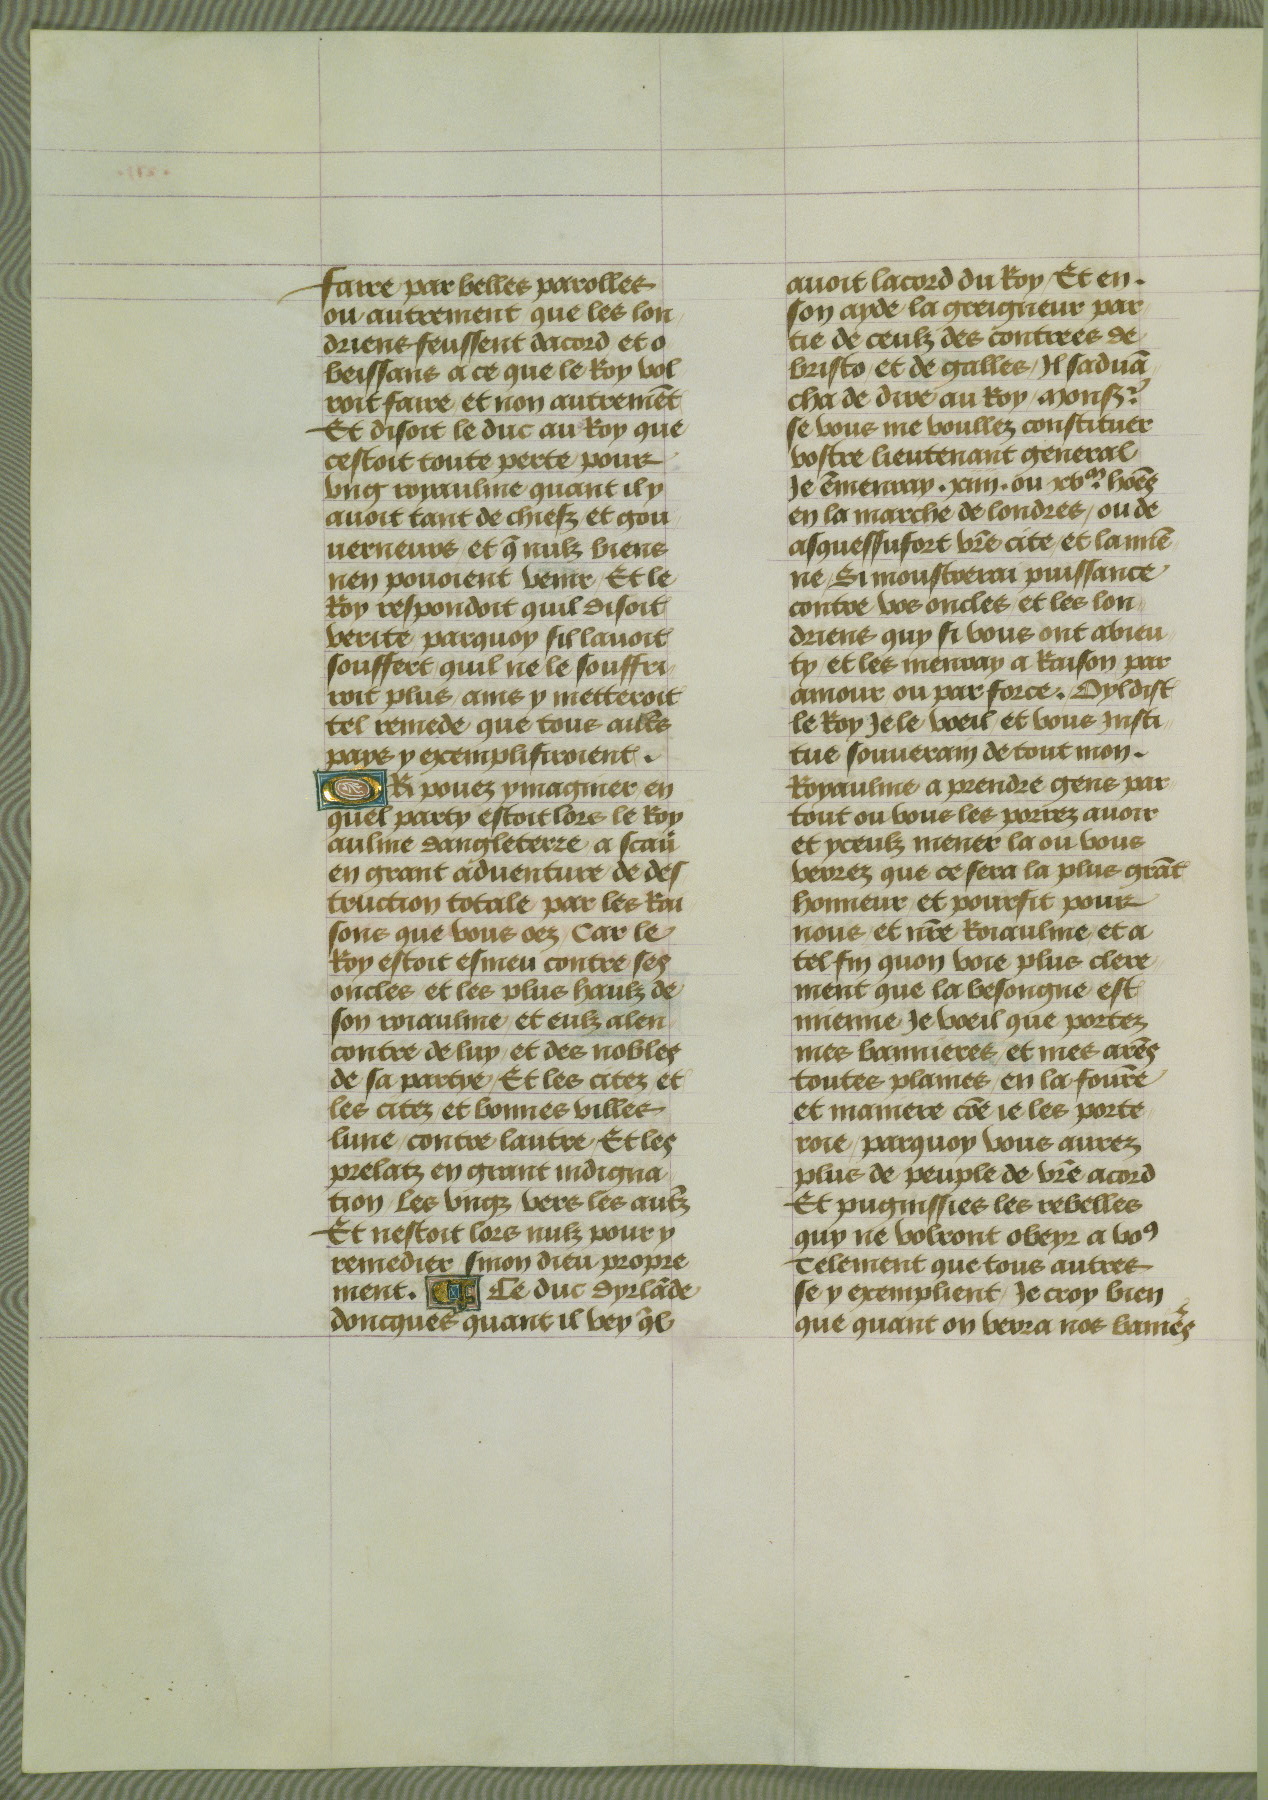 faire par belles parolles
ou autrement que les lon
driens feussent dacord et o
beissans a ce que le Roy vol
roit faire et non autremēt
Et disoit le duc au Roy que
cestoit toute perte pour
vng royaulme quant il y
auoit tant de chiefz et gou
uerneurs et q̄ nulz biens
nen pouoient venir Et le
Roy respondoit quil disoit
verite parquoy sil lauoit
souffert quil ne le souffri
roit plus ains y metteroit
tel remede que tous aultr̄s
pays y exemplifiroient .
OR pouez ymaginer en
quel party estoit lors le Roy
aulme dangleterre a scaū
en grant aduenture de des
truction totale par les Rai
sons que vous oez Car le
Roy estoit esmeu contre ses
oncles et les plus haulz de
son roiaulme et eulz alen
contre de luy et des nobles
de sa partye Et les citez et
les citez et bonnes villes
lune contre lautre Et les
prelatz en grant indigna
tion les vngz vers les autr̄z
Et nestoit lors nulz pour y
remedier sinon dieu propre
ment . Le duc dyrlāde
doncques quant il vey q̄l
auoit lacord du Roy Et en .
son ayde la greigneur par
tie de ceulz des contrees de
bristo et de galles Il saduā
cha de dire au Roy Monsr̄
se vous me voullez constituer
vostre lieutenant general
Je ēmenray . xiiii . ou xvm. hōes
en la marche de londres ou de
asquessufort vr̄e cite et la miē
ne Si moustrerai puissance
contre vos oncles et les lon
driens quy si vous ont abieu
ty et les menray a Raison par
amour ou par force . Oyl dist
le Roy Je le voeil et vous Insti
tue souuerain de tout mon .
Royaulme a prendre gens par
tout ou vous les porrez auoir
et yceulz mener la ou vous
verrez que ce sera la plus grāt
honneur et pourfit pour
nous et nr̄e Roiaulme et a
tel fin quon voie plus clere
ment que la besongne est
mienne Je voeil que portez
mes bannieres et mes arm̄es
toutes plaines en la fourm̄e
et maniere cōe ie les porte
roie parquoy vous aurez
plus de peuple de vr̄e acord
Et pugnissies les rebelles
quy ne volront obeyr a voꝰ
Telement que tous autres
se y exemplient Je croy bien
que quant on verra nos banier̄s